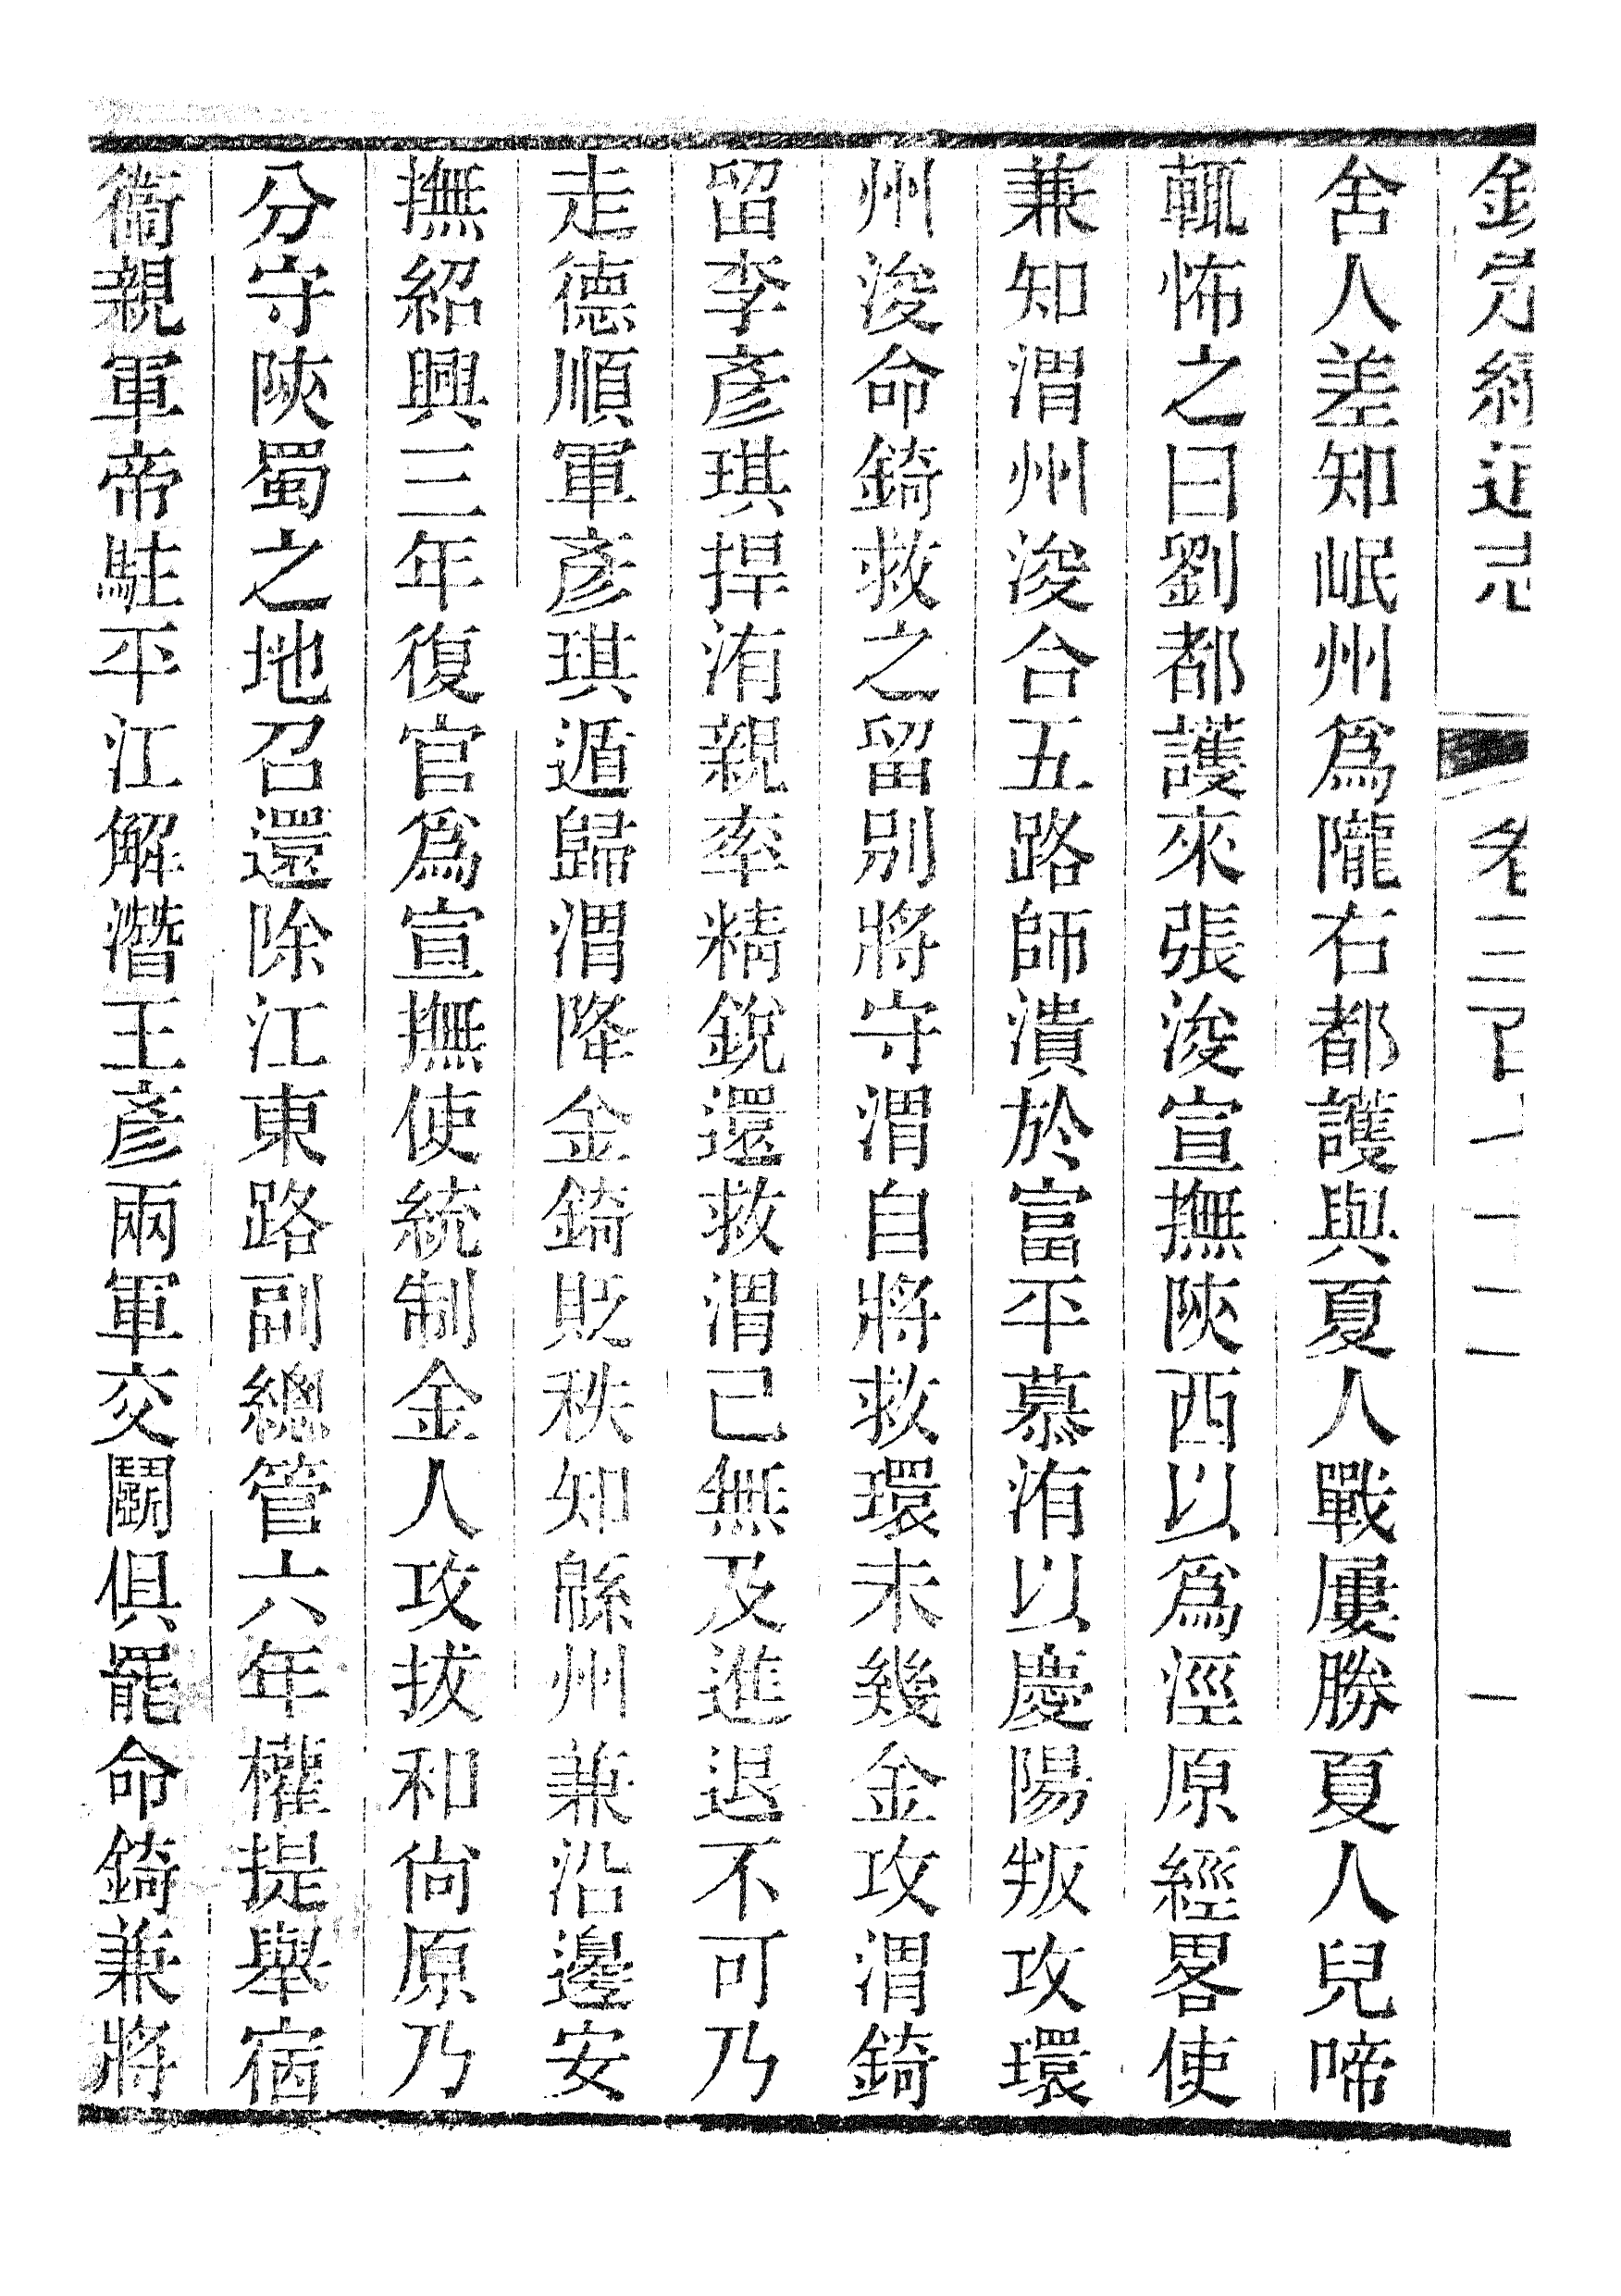 欽定續通志 卷三百
舍人差知岷州爲隴右都護與夏人戰屢勝夏人兒啼
輒怖之曰劉都護來張浚宣撫陝西以爲涇原經畧使
兼知渭州浚合五路師潰於富平慕洧以慶陽叛攻環
州浚命錡救之留別將守渭自將救環未幾金攻渭錡
留李彥琪捍洧親率精銳還救渭已無及進退不可乃
走德順軍彥琪遁歸渭降金錡貶秩知緜州兼沿邊安
撫紹興三年復官爲宣撫使統制金人攻拔和尙原乃
分守陝蜀之地召還除江東路副總管六年權提舉宿
衞親軍帝駐平江解潛王彥兩軍交鬭俱罷命錡兼將